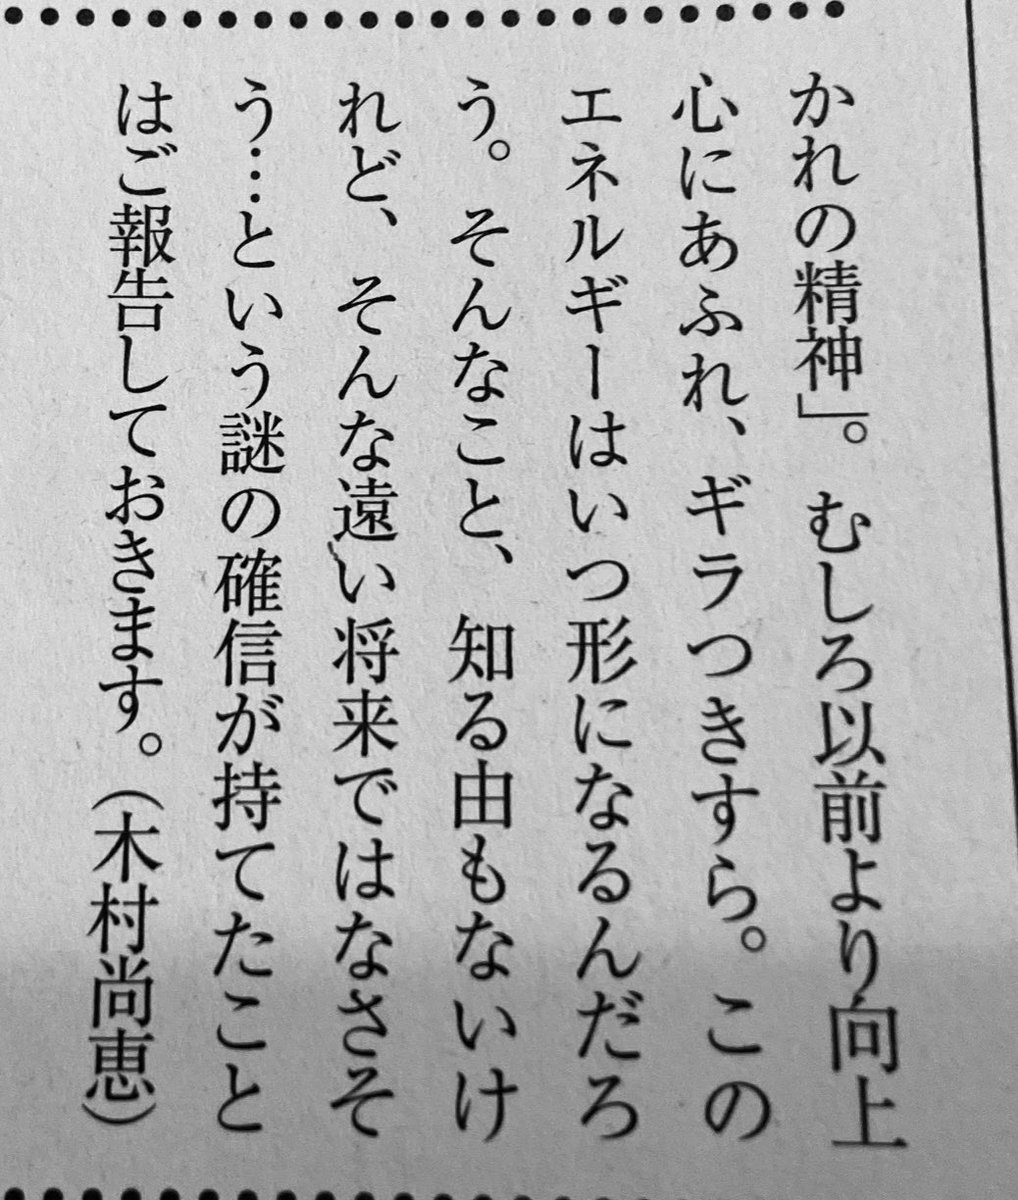 かれの精神」。むしろ以前より向上
心にあふれ、ギラつきすら。この
エネルギーはいつ形になるんだろ
う。そんなこと、知る由もないけ
れど、そんな遠い将来ではなさそ
う…という謎の確信が持てたこと
はご報告しておきます。（木村尚恵）